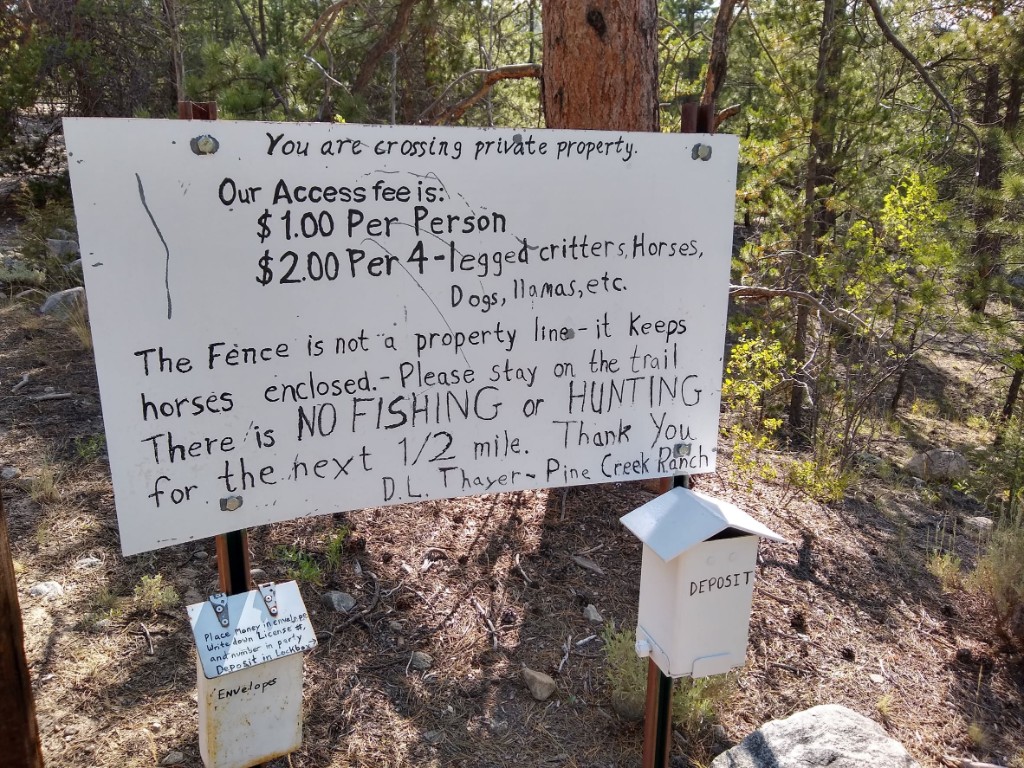 You are crossing private property.
Our Access fee is:
$1.00 Per Person
$2.00 Per 4-legged critters, Horses,
Dogs, llamas, etc.
The Fence is not a property line - it keeps
horses enclosed. - Please stay on the trail
There is NO FISHING or HUNTING
for the next 1/2 mile. Thank You
D.L. Thayer - Pine Creek Ranch
Place Money in envelope,
Write down License #,
and number in party,
Deposit in Lockbox
Envelopes
DEPOSIT